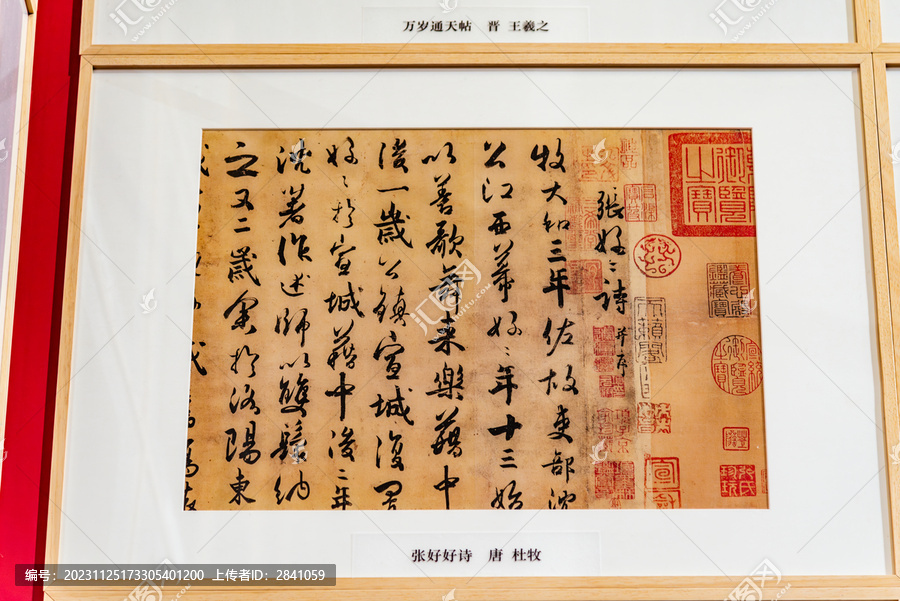 万岁通天帖 晋 王羲之
張好〻詩 并序
牧大和三年佐故吏部沈
公江西幕好〻年十三始
以善歌舞来樂籍中
後一歲公鎮宣城復置
好〻於宣城籍中後二年
沈著作述師以雙鬟納
之又二歲余於洛陽東
张好好诗 唐 杜牧
编号：20231125173305401200 上传者ID：2841059